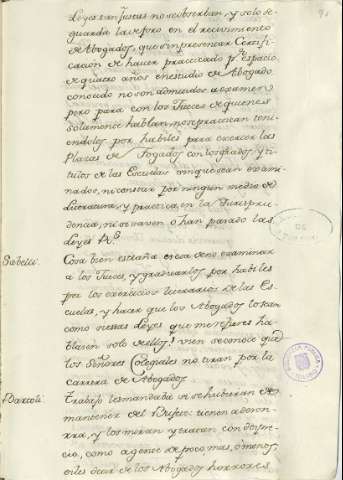 Leyes tan justas no se observan, y solo se
guarda la de foro en el recivimiento
de Abogados, que sin presentar Certifi-
cacion de haver practicado p.r espacio
de quatro años en estudio de Abogado
conocido no son admitidos a examen;
pero para con los Jueces de quienes
solamente hablan, no se practican teni-
endolos por habiles para exercer las
Plazas de Togados con los grados, y ti-
tulos de las Escuelas sin que sean exami-
nados, ni conste por ningun medio de
Literatura, y practica en la Jurispru-
dencia, ni se vaven o han pasado las
Leyes R.s
Sabelli: Cosa bien estraña es esa de no examinar
a los Jueces, y graduarlos por habiles
por los exercicios literarios de las Es-
cuelas, y hacer que los Abogados lo sean
como si esas Leyes que mos fieres ha-
blasen solo de ellos! vien se conoce que
los Señores Colegiales no tiran por la
carrera de Abogados
Bartoli: Trabajo les mandaba si se hubieran de
mantener del Bufete: tienen a deson-
rra, y los miran y tratan con despre-
cio, como a gente de poco mas, ó menos,
oiles decir de los Abogados horrores